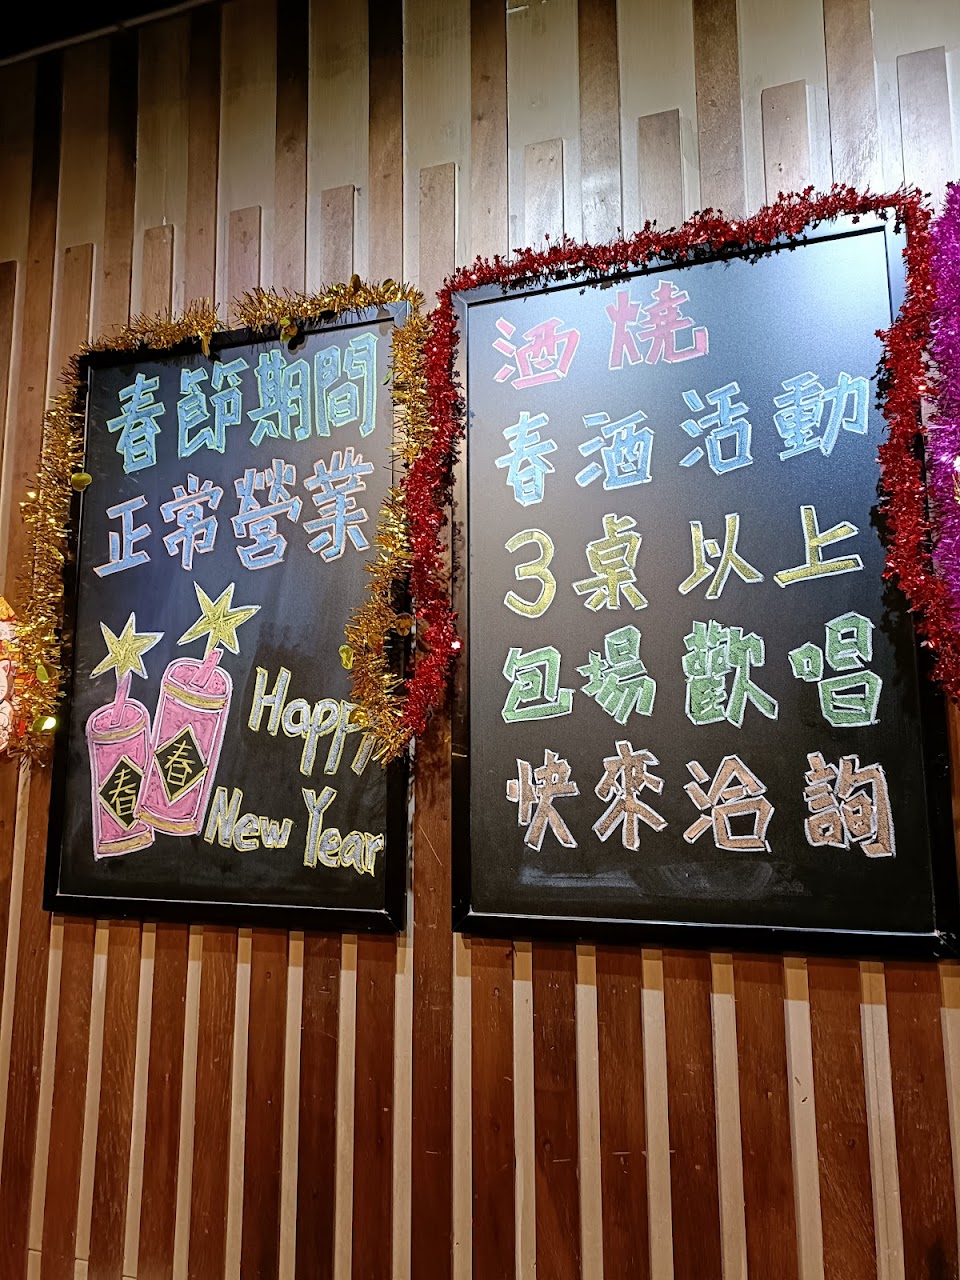 春節期間
正常營業
春
春
Happy
New Year
酒燒
春酒活動
3桌以上
包場歡唱
快來洽詢